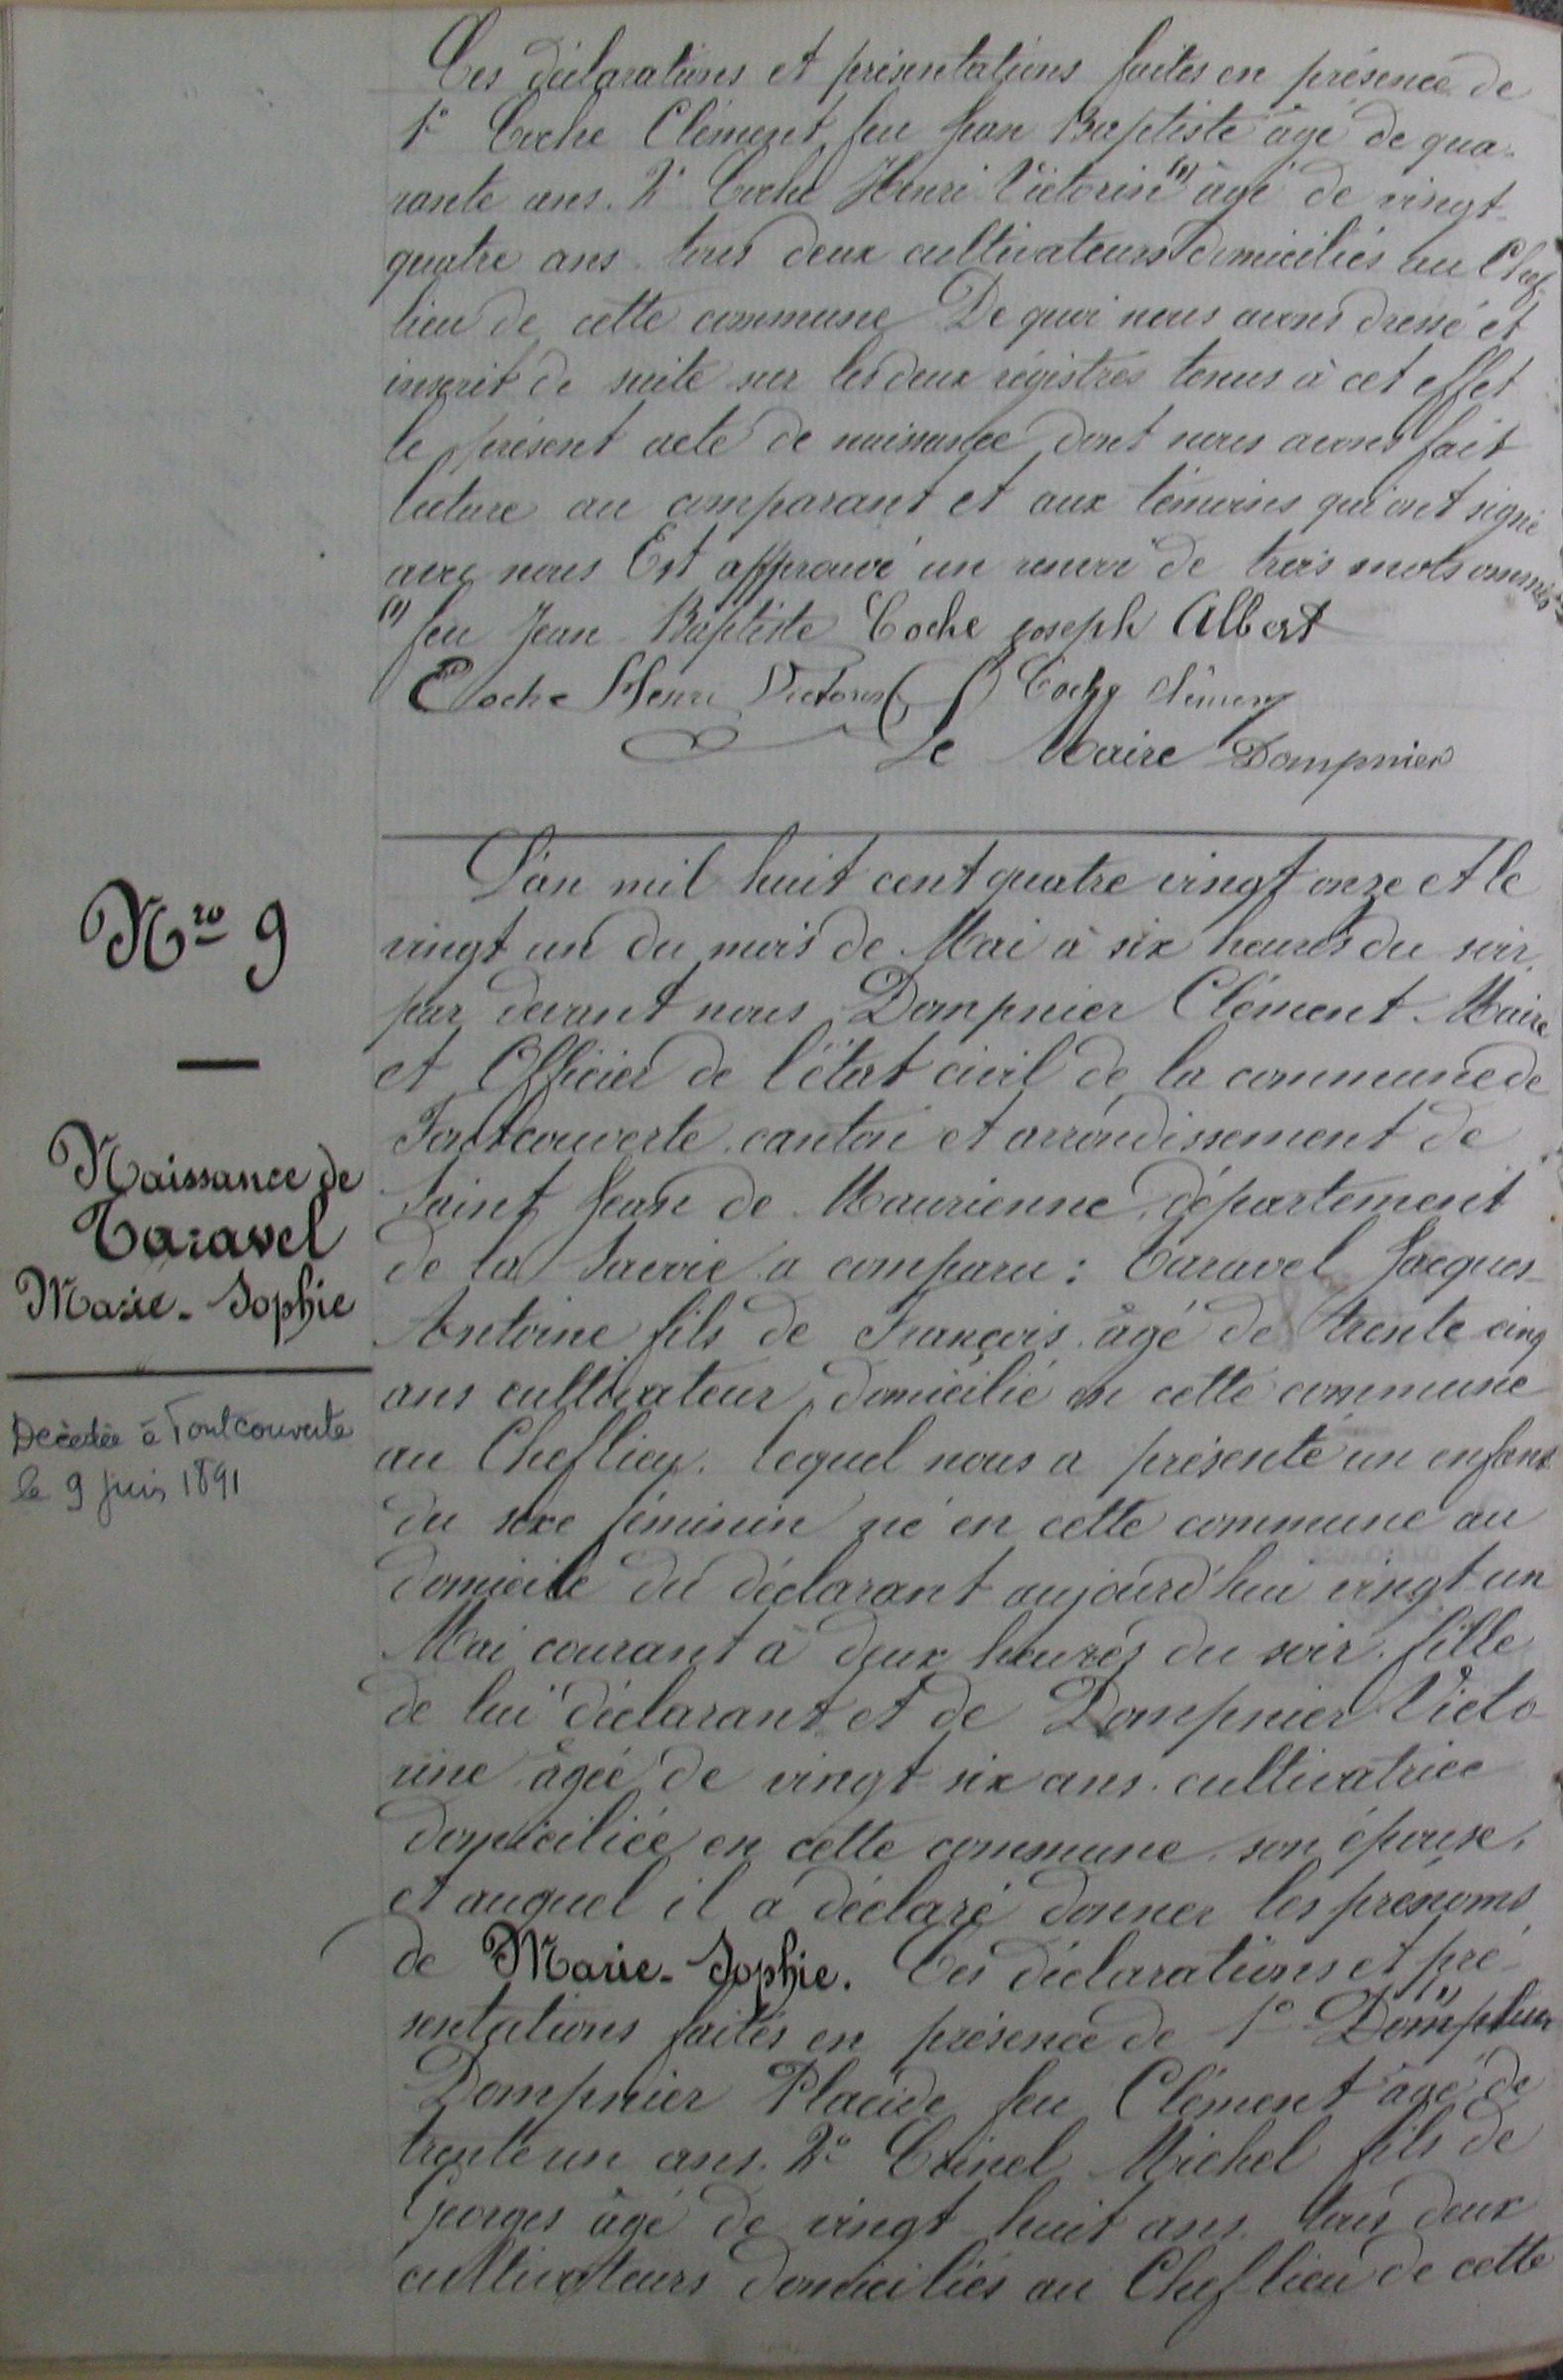 Ces déclarations et présentations faites en présence de
1° Coche Clément feu Jean Baptiste âgé de qua-
rante ans. 2° Coche Henri Victorin (1) âgé de vingt-
quatre ans tous deux cultivateurs domiciliés au Chef-
lieu de cette commune De quoi nous avons dressé et
inscrit de suite sur les deux régistres tenus à cet effet
le présent acte de naissance dont nous avons fait
lecture au comparant et aux témoins qui ont signé
avec nous Est approuvé un renvoi de trois mots ommis
(1) feu Jean Baptiste Coche joseph Albert
Coche Henri Victorin Coche Clément
Le Maire Dompnier
Nro 9
Naissance de
Taravel
Marie-Sophie
Décédée à Fontcouverte
le 9 juin 1891
L'an mil huit cent quatre vingt onze et le
vingt un du mois de Mai à six heures du soir,
par devant nous Dompnier Clément Maire
et Officier de l'état civil de la commune de
Fontcouverte canton et arrondissement de
Saint Jean de Maurienne, département
de la Savoie a comparu : Taravel Jacques-
Antoine fils de François âgé de trente cinq
ans cultivateur, domicilié en cette commune
au Cheflieu. lequel nous a présenté un enfant
du sexe féminin né en cette commune au
domicile du déclarant aujourd'hui vingt un
Mai courant à deux heures du soir. fille
de lui déclarant et de Dompnier Victo-
rine âgée de vingt-six ans. cultivatrice
domiciliée en cette commune son épouse,
et auquel il a déclaré donner les prénoms
de Marie-Sophie. Ces déclarations et pré-
sentations faites en présence de 1°
Dompnier Placide feu Clément âgé de
trente un ans. 2° Michel fils de
Georges âgé de vingt-huit ans tous deux
cultivateurs domiciliés au Cheflieu de cette